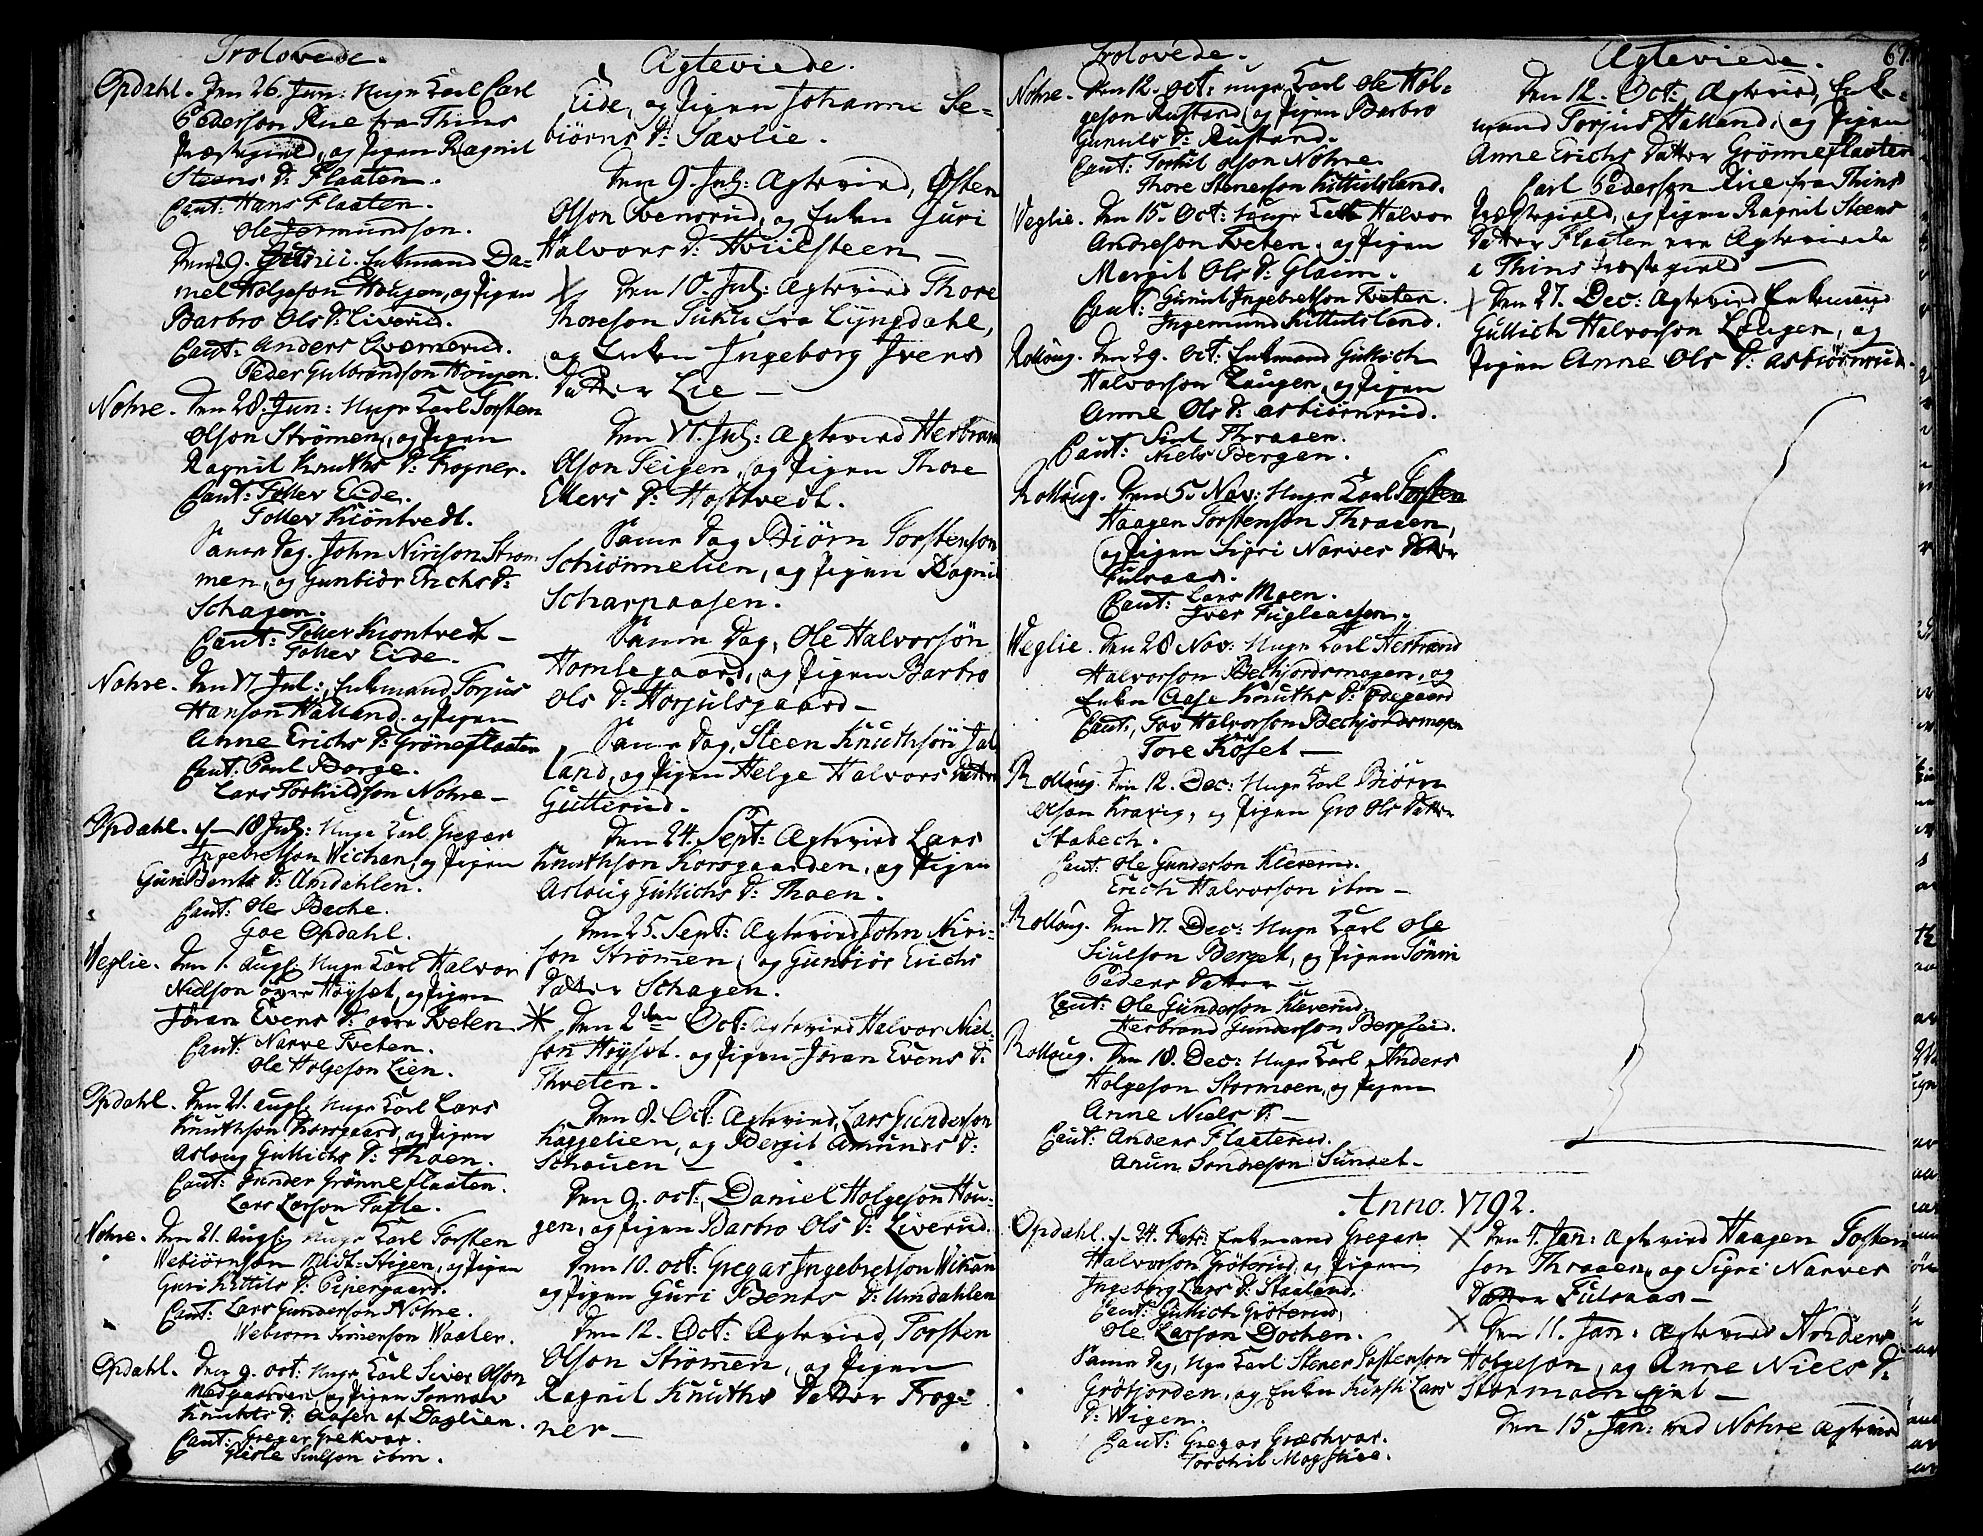 Trolovede.
Opdahl. Den 26. Jun: Unge Karl Carl
Pederson Rue fra Thins
Præstegield, og Pigen Ragnil
Steens D: Flaaten.
Caut: Hans Flaaten.
Ole Jermundson.
Den 29. Junii. Enkemand Da=
niel Holgeson Hougen, og Pigen
Barbro Ols D: Liverud.
Caut: Anders Qvernerud.
Peder Gulbrandson Hougen.
Nohre. Den 28. Jun: Unge Karl Torsten
Olson Strömen, og Pigen
Ragnil Knuths D: Frogner.
Caut: Tollev Eide.
Tollev Kiöntvedt.
Samme Dag. John Nirison Ström
men, og Gunbiör Erichs D:
Schagen.
Caut: Tollev Kiontvedt –
Tollev Eide.
Nohre. Den 17. Jul: Enkemand Torjus
Hanson Halland. og Pigen
Anne Erichs D: Gröneflaaten
Caut: Poul Borge.
Lars Torkildson Nohre –
Opdahl. d– 18 Jul: Unge Karl Gregar
Ingebretson Wichan og Pigen
Guri Bents D: Umdahlen.
Caut: Ole Beche.
Goe Opdahl.
Veglie. Den 1. Augl: Unge Karl Halvor
Nielson övre Höyset, og Pigen
Jöran Evens D: övre Tveten
Caut: Narve Tveten.
Ole Holgeson Lien.
Opdahl. Den 21. Augl: Unge Karl Lars
Knuthson Korsgaard, og Pigen
Aslaug Gullichs D: Thoen.
Caut: Gunder Grönneflaaten.
Lars Larson Tofte.
Nohre. Den 21. Augl: Unge Karl Torsten
Webiörnson Midt-Stigen, og Pigen
Guri Kittils D: Pipergaard.
Caut: Lars Gunderson Nohre.
Webiorn Simenson Waaler.
Opdahl. Den 9. Oct: Unge Karl Siver Olson
Medgaarden, og Pigen Sonnav
Knuths D: Aasen af Daglien.
Caut: Gregar Grekvar.
Gisle Siulson ibm.
Ægteviede.
Eide, og Pigen Johanne Se=
biörns D: Sævlie.
Den 9. Jul: Ægtevied, Østen
Olson Evensrud, og Enken Guri
Halvors D: Hviilsteen –
X Den 10. Jul: Ægteviet Thore
Thoreson Tukli fra Lyngdahl,
og Enken Ingeborg Ivers
Datter Lie –
Den 17. Jul: Ægteviet Herbran
Olson Teigen, og Pigen Thore
Ellers D: Hosttvedt.
Samme Dag Biörn Torstenson
Schiönnelien, og Pigen Ragnil
Scharpaasen.
Samme Dag, Ole Halvorsön
Homlegaard, og Pigen Barbro
Ols D: Horjulsgaard –
Samme Dag, Steen Knuthsön Jal
land, og Pigen Helge Halvors Datter
Gutterud.
Den 24. Sept: Ægteviet Lars
Knuthson Korsgaarden, og Pigen
Aslaug Gullichs D: Thoen.
Den 25. Sept: Ægteviet John Niri=
son Strömen, og Gunbiör Erichs
Datter Schagen.
* Den 2den Oct: Ægteviet Halvor Niel
son Höyset. og Pigen Jöran Evens D:
Thveten.
Den 8. Oct: Ægteviet, Lars Gunderson
Kaggelien, og Bergit Amunds D:
Schouen –
Den 9. Oct: Daniel Holgeson Hou=
gen, og Pigen Barbro Ols D: Liverud.
Den 10. Oct: Gregar Ingebretson Wikan
og Pigen Guri Bents D: Umdahlen
Den 12. Oct: Ægteviet, Torsten
Olson Strömen, og Pigen
Ragnil Knuths Datter Frog=
ner –
Trolovede.
Nohre. Den 12. Oct: unge Karl Ole Hol=
geson Rustand, og Pigen Barbro
Gunuls D: Rustand.
Caut: Torkil Olson Nohre.
Thore Stenerson Kittulsland.
Veglie. Den 15. Oct: Unge Karl Halvor
Andreson Tveten. og Pigen
Margit Ols D: Glaim.
Caut: Gunnul Ingebretson Tveten.
Ingemund Kittulsland.
Rolloug. Den 29. Oct: Enkemand Gullich
Halvorson Laugen, og Pigen
Anne Ols D: Asbiörnrud.
Caut: Siul Thraaen.
Niels Bergan.
Rolloug. Den 5. Nov: Unge Karl Torsten
Haagen Torstenson Thraaen,
og Pigen Sigri Narves Datter
Fulsaas.
Caut: Lars Moen.
Iver Fugleaasen.
Veglie. Den 28 Nov: Unge Karl Herbrand
Halvorson Bekjordsmogen, og
Enken Aase Knuths D: Ödegaard
Caut: Tov Halvorson Bechjordsmogen
Tore Köset –
Rolloug. Den 12. Dec: Unge Karl Biörn
Olson Kravig, og Pigen Gro Ols Datter
Stabech.
Caut: Ole Gunderson Kleverud.
Erich Halvorson ibm –
Rolloug. Den 17. Dec: Unge Karl Ole
Siulson Berget, og Pigen Tönni
Peders Datter –
Caut: Ole Gunderson Kleverud
Herbrand Gunderson Bergseid.
Rolloug. Den 18. Dec: Unge Karl Anders
Holgeson Stormoen, og Pigen
Anne Niels D: –
Caut: Anders Flaaterud.
Arun Sondreson Sundet –
Ægteviede.
67.
Den 12. Oct: Ægteviet, Enke=
mand Torjus Halland, og Pigen
Anne Erichs Datter Grönneflaaten
Carl Pederson Rue fra Thins
Præstegield, og Pigen Ragnil Steens
Datter Flaaten ere Ægteviede
i Thins Præstegield –
X Den 27. Dec: Ægteviet Enkemand
Gullich Halvorson Laugen, og
Pigen Anne Ols D: Asbiörnrud.
Anno. 1792.
Opdahl. d– 24. Febr: Enkemand Gregar
Halvorson Gröterud, og Pigen
Ingeborg Lars D: Staaland.
Caut: Gullich Gröterud
Ole Larson Dochen.
Samme Dag, Unge Karl Stener Torstenson
Grötjorden, og Enken Kirsti Lars
D: Wigen.
Caut: Gregar Græchvar.
Torchil Mogstue.
X Den 7. Jan: Ægteviet Haagen Torsten
son Thraaen, og Sigri Narves
Datter Fulsaas –
X Den 11. Jan: Ægteviet Anders
Holgeson, og Anne Niels D:
Stormoen Eie –
Den 15. Jan: ved Nohre Ægteviet